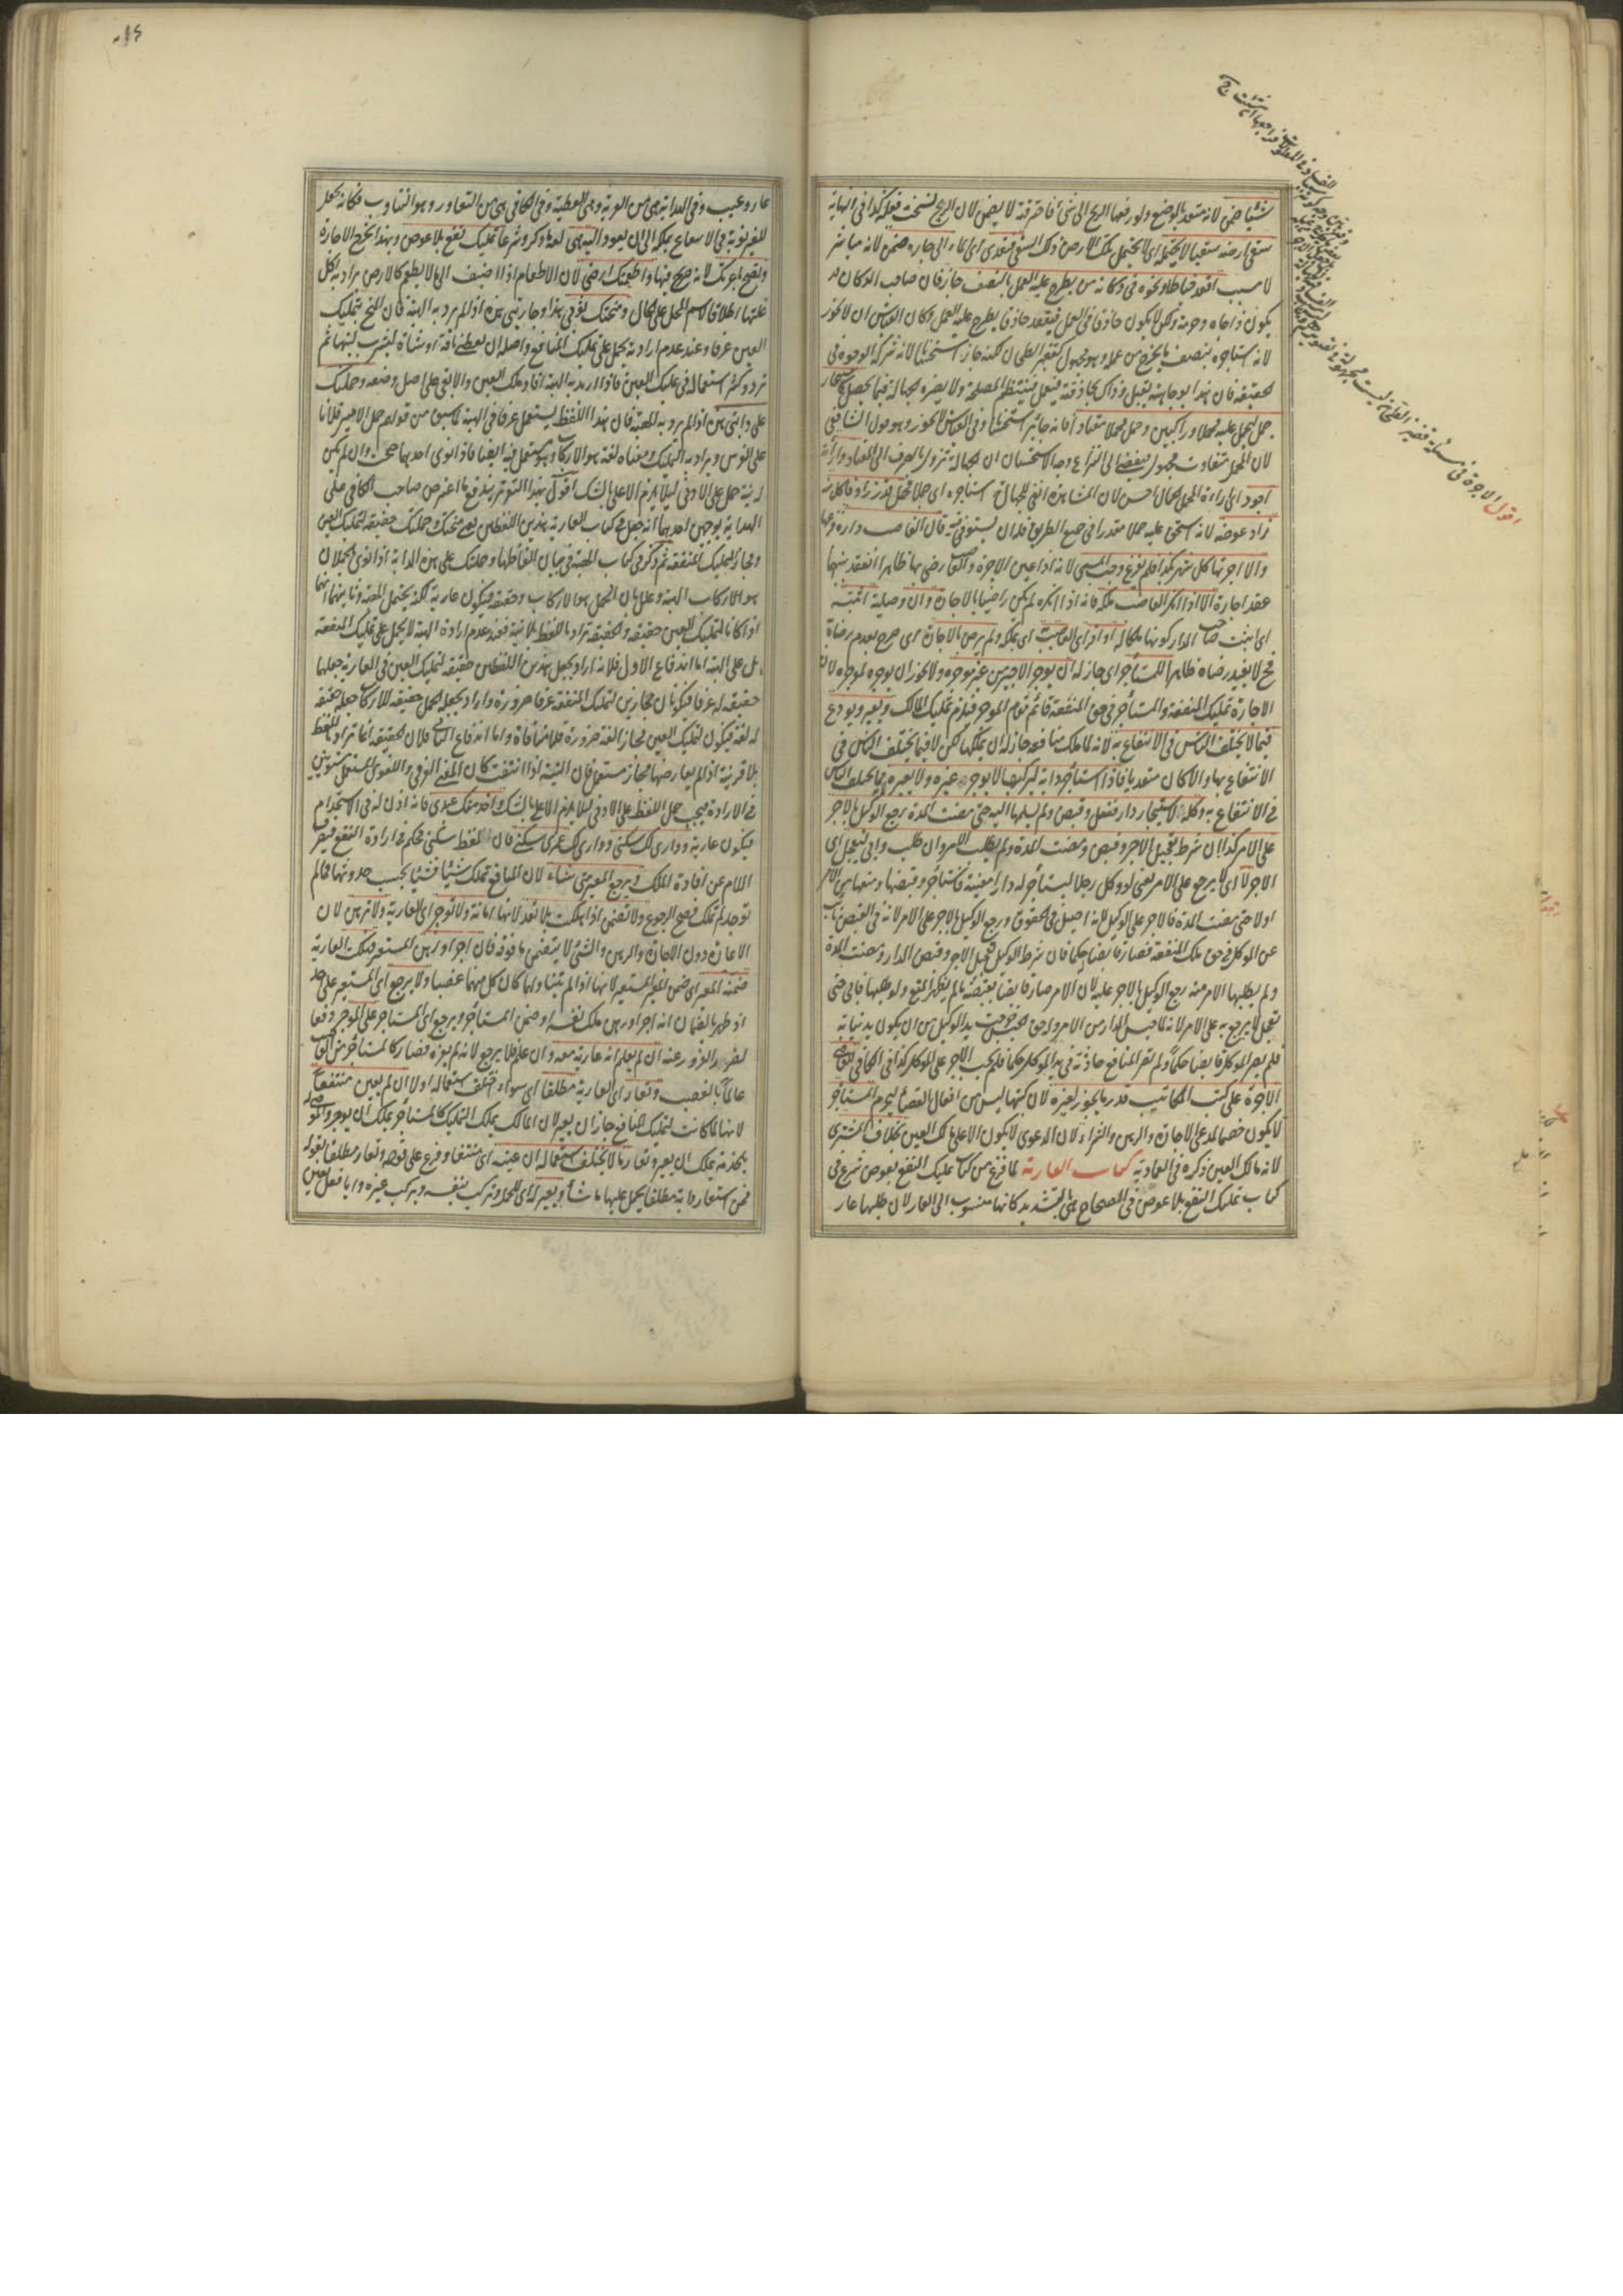 شيئا ضمن لانه متعد بالوضع ولو رفعها الريح الى شئ فاحرقته لا يضمن لان الريح نسخت فعله كذا فى النهاية
سقى ارضه سقيا لا يحتمله اى لا يحتمل تلك الارض ذلك السقى فتعدى اى الماء الى جاره ضمن لانه مباشر
لا مسبب اقعد خياط او نحوه فى دكانه من يطرح عليه العمل بالنصف جاز فان صاحب الدكان قد
يكون ذا جاه وحرمة ولكن لا يكون حاذقا فى العمل فيقعد حاذقا يطرح عليه العمل وكان القياس ان لا يجوز
لانه استأجره بنصف ما يخرج من عمله وهو مجهول كقفيز الطحان لكنه جاز استحسانا لانه شركة الوجوه فى
الحقيقة فان هذا بوجاهته يقبل وذاك بحذاقته يعمل فينتظم المصلحة ولا يضره الجهالة فيما يحصل كاستئجار
جمل ليحمل عليه محملا وراكبين وحمل محملا معتادا فانه جائز استحسانا وفى القياس لا يجوز وهو قول الشافعى
لان المحمل متفاوت مجهول فيفضى الى النزاع وجه الاستحسان ان الجهالة تزول بالصرف الى المعتاد وارائه
اجود اى اراءة المحمل الجمال احسن لان المشاهدة انفى للجهالة استأجره اى جملا لحمل قدر زاد فاكل منه
زاد عوضه لانه استحق عليه حملا مقدرا فى جميع الطريق فله ان يستوفيه قال لغاصب داره فرغها
والا اجرتها كل شهر بكذا فلم يفرغ وجب المسمى لانه اذا عين الاجرة والغاصب رضى بها ظاهرا انعقد بينهما
عقد اجارة الا اذا انكر الغاصب ملكه فانه اذا انكره لم يكن راضيا بالاجارة وان وصلية اثبته
اى اثبت صاحب الدار كونها ملكا له او اقر اى الغاصب اى بملكه ولم يرض بالاجارة اى صرح بعدم رضاه
فح لا يفيد رضاه ظاهرا للمستأجر اى جاز له ان يوجر الاجير من غير موجره ولا يجوز ان يوجره لموجره لان
الاجارة تمليك المنفعة والمستأجر فى حق المنفعة قائم مقام الموجر فيلزم تمليك المالك ويعير ويودع
فيما لا يختلف الناس فى الانتفاع به لانه لما ملك منافعه جاز له ان يملكها لكن لا فيما يختلف الناس فى
الانتفاع بها والا كان متعديا فاذا استأجر دابة ليركبها لا يوجر غيره ولا يعيره مما يختلف الناس
فى الانتفاع به وكله لاستيجار دار ففعل وقبض ولم يسلمها اليه حتى مضت المدة رجع الوكيل بالاجر
على الامر كذا ان شرط تعجيل الاجر وقبض ومضت المدة ولم يطلب الامر وان طلب وابى ليعجل اى
الاجر لا اى لا يرجع على الامر يعنى لو وكل رجلا ليستأجر له دارا معينة فاستأجر وقبضها ومنعها من الامر
اولا حتى مضت المدة فالاجر على الوكيل لانه اصيل فى الحقوق ورجع الوكيل بالاجر على الامر لانه فى القبض نائب
عن الموكل فى حق ملك المنفعة فصار قابضا حكما فان شرط الوكيل تعجيل الاجر وقبض الدار ومضت المدة
ولم يطلبها الامر منه رجع الوكيل بالاجر عليه لان الامر صار قابضا بقبضه ما لم يظهر المنع ولو طلبها فابى حتى
تعجل لا يرجع به على الامر لانه لما حبس الدار من الامر وله حق الحبس خرجت يد الوكيل من ان يكون يد نيابة
فلم يصر الموكل قابضا حكما ولم تصر المنافع حادثة فى يد الموكل حكما فلم يجب الاجر على الموكل كذا فى الكافى للقاضى
الاجرة على كتب المكاتيب قدر ما يجوز لغيره لان كتبها ليس من افعال القضاء ليحرم المستأجر
لا يكون خصما لمدعى الاجارة والرهن والشراء لان الدعوى لا يكون الا على مالك العين بخلاف المشترى
لانه مالك العين ذكره فى العمادية كتاب العارية لما فرغ من كتاب تمليك النفع بعوض شرع فى
كتاب تمليك النفع بلا عوض فى الصحاح هى بالتشديد كانها منسوب الى العار لان طلبها عار
عار وعيب وفى الهداية هى من العرية وهى العطية وفى الكافى هى من التعاور وهو التناوب فكانه يجعل
للغير نوبة فى الانتفاع بملكه الى ان يعود اليه هى لغة ما ذكر وشرعا تمليك نفع بلا عوض وبهذا يخرج الاجارة
وتصح باعرتك لانه صريح فيها واطعمتك ارضى لان الاطعام اذا اضيف الى ما لا يطعم كالارض يراد به اكل
غلتها اطلاقا لاسم المحل على الحال ومنحتك ثوبى هذا وجاريتى هذه اذا لم يرد به الهبة فان المنح لتمليك
العين عرفا وعند عدم ارادته يحمل على تمليك المنافع واصله ان يعطى ناقة او شاة ليشرب لبنها ثم
ترد وكثر استعماله فى تمليك العين فاذا اريد به الهبة افاد ملك العين والا بقى على اصل وضعه وحملتك
على دابتى هذه اذا لم يرد به الهبة فان هذا اللفظ يستعمل عرفا فى الهبة كما سبق من قولهم حمل الامير فلانا
على الفرس ويراد به التمليك ومعناه لغة هو الاركاب ويستعمل فيه ايضا فاذا نوى احدهما صحت وان لم يكن
له نية حمل على الادنى ليلا يلزم الاعلى بالشك اقول بهذا التقرير يندفع ما اعترض صاحب الكافى على
الهداية بوجهين احدهما انه جعل فى كتاب العارية هذين اللفظين يعنى منحتك وحملتك حقيقة لتمليك العين
ومجازا لتمليك المنفعة ثم ذكر فى كتاب الهبة فى بيان الفاظها وحملتك على هذه الدابة اذا نوى بالحملان
هو الاركاب الهبة وعلل بان الحمل هو الاركاب وحقيقة فيكون عارية لكنه يحتمل الهبة وثانيهما انهما
اذا كانا لتمليك العين حقيقة والحقيقة تراد باللفظ بلا نية فعند عدم ارادة الهبة لا يحمل على تمليك المنفعة
بل على الهبة اما اندفاع الاول فلانه اراد بجعل هذين اللفظين حقيقة لتمليك العين فى العارية جعلهما
حقيقة له عرفا فيكونان مجازين لتمليك المنفعة عرفا ضرورة واراد بجعله الحمل حقيقة للاركاب جعله حقيقة
له لغة فيكون لتمليك العين مجازا لغة ضرورة فلا منافاة واما اندفاع الثانى فلان الحقيقة انما تراد باللفظ
بلا قرينة اذا لم يعارضها مجاز مستعمل فان النية اذا انتفت كان المعنى العرفى واللغوى المستعمل مستويين
فى الارادة فيجب حمل اللفظ على الادنى ليلا يلزم الاعلى بالشك واخدمتك عبدى فانه اذن له فى الاستخدام
فيكون عارية ودارى لك سكنى ودارى لك عمرى سكنى فان لفظ سكنى محكم فى ارادة النفع فيصرف
اللام عن افادة الملك ويرجع المعير متى شاء لان المنافع تملك شيئا فشيئا بحسب حدوثها فما لم
توجد لم تملك فصح الرجوع ولا تضمن اذا هلكت بلا تعد لانها امانة ولا توجر اى العارية ولا ترهن لان
الاعارة دون الاجارة والرهن والشئ لا يتضمن ما فوقه فان اجر او رهن المستعير فهلكت العارية
ضمنه المعير اى ضمن المعير المستعير لانها اذا لم يتناولهما كان كل منهما غصبا ولا يرجع اى المستعير على احد
اذ ظهر بالضمان انه اجر او رهن ملك نفسه او ضمن المستأجر ويرجع اى المستأجر على الموجر دفعا
لضرر الغرور عنه ان لم يعلم انه عارية معه وان علم فلا يرجع لانه لم يغره فصار كالمستأجر من الغاصب
عالما بالغصب وتعار اى العارية مطلقا اى سواء اختلف استعماله اولا ان لم يعين منتفعا
لانها لما كانت لتمليك المنافع جاز ان يعير لان المالك يملك التمليك كالمستأجر يملك ان يوجر والموصى له
بالخدمة يملك ان يعير وتعار ما لا يختلف استعماله ان عينه اى منتفعا وفرع على قوله وتعار مطلقا بقوله
فمن استعار دابة مطلقا يحمل عليها ما شاء ويعير له اى للحمل ويركب بنفسه ويركب غيره وايا فعل تعين
اقول الاجرة فى مسئلة قفيز الطحان ليست مجهولة